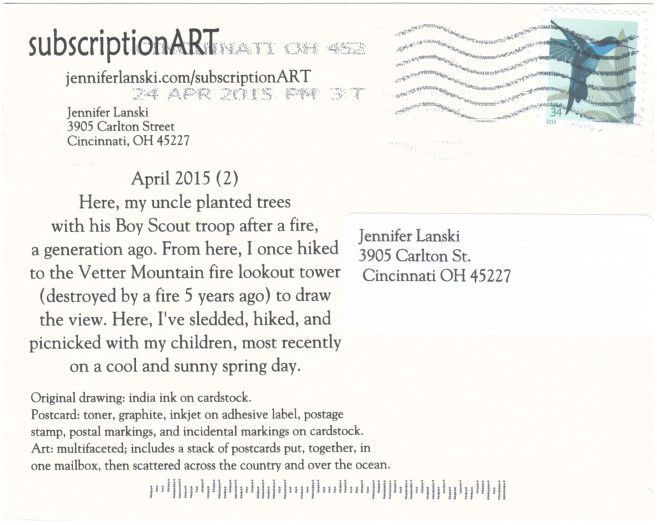 subscriptionART
CINCINNATI OH 452
jenniferlanski.com/subscriptionART
24 APR 2015 PM 3 T
Jennifer Lanski
3905 Carlton Street
Cincinnati, OH 45227
34
2014
April 2015 (2)
Here, my uncle planted trees
with his Boy Scout troop after a fire,
a generation ago. From here, I once hiked
to the Vetter Mountain fire lookout tower
(destroyed by a fire 5 years ago) to draw
the view. Here, I've sledded, hiked, and
picnicked with my children, most recently
on a cool and sunny spring day.
Jennifer Lanski
3905 Carlton St.
Cincinnati OH 45227
Original drawing: india ink on cardstock.
Postcard: toner, graphite, inkjet on adhesive label, postage
stamp, postal markings, and incidental markings on cardstock.
Art: multifaceted; includes a stack of postcards put, together, in
one mailbox, then scattered across the country and over the ocean.